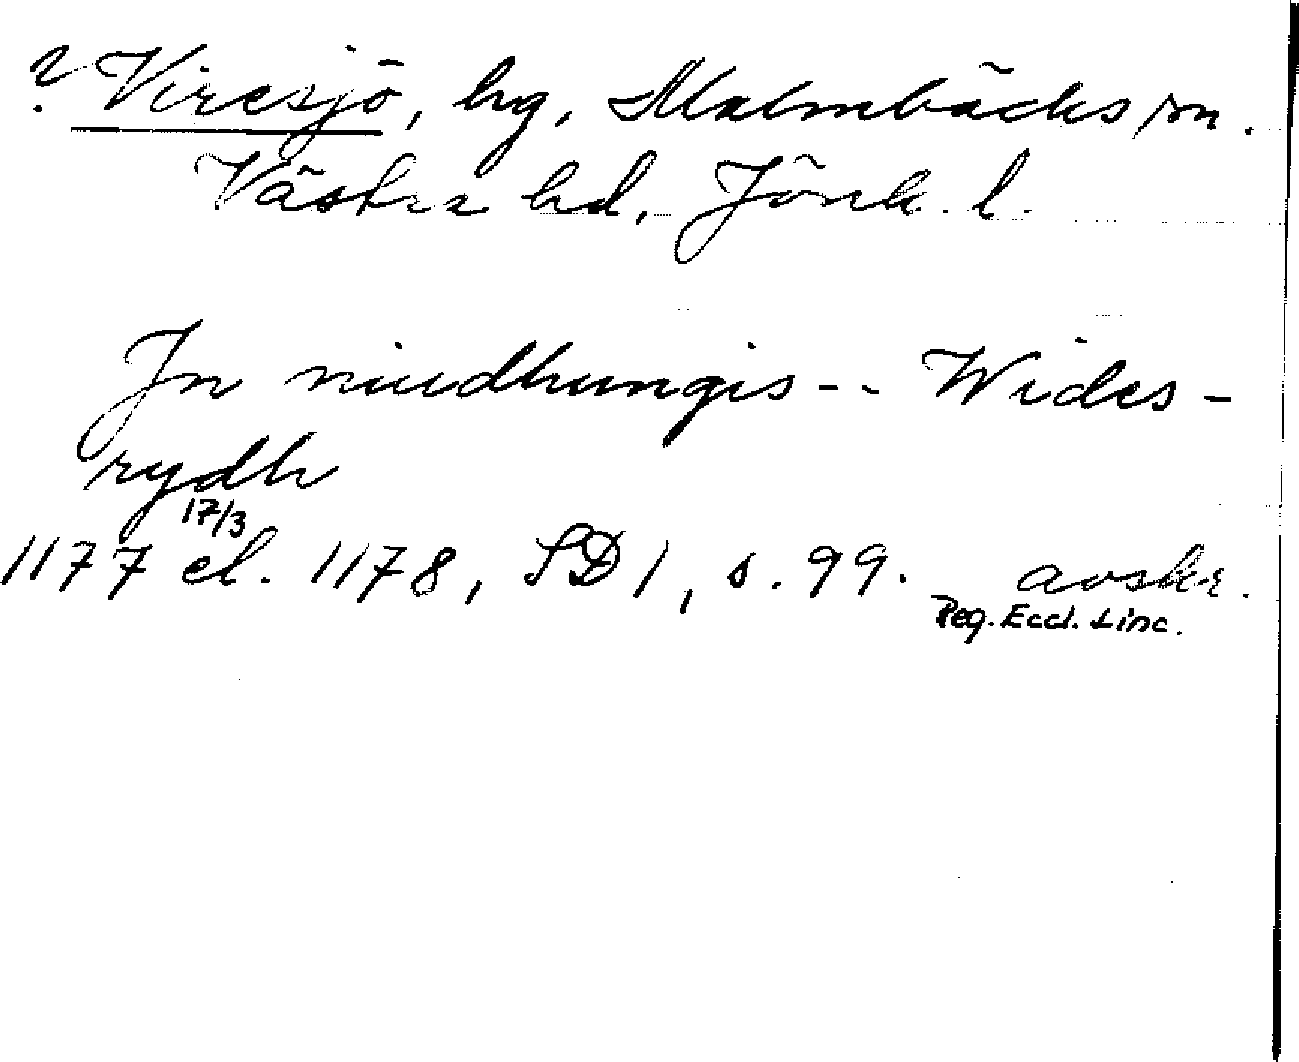 ? Viresjö, hg, Malmbäcks sn.
Västra hd, Jönk. l.
Jn niudhungis -- Wides-
rydh
17/3
1177 el. 1178, SD 1, s. 99. avskr.
Reg. Eccl. Linc.